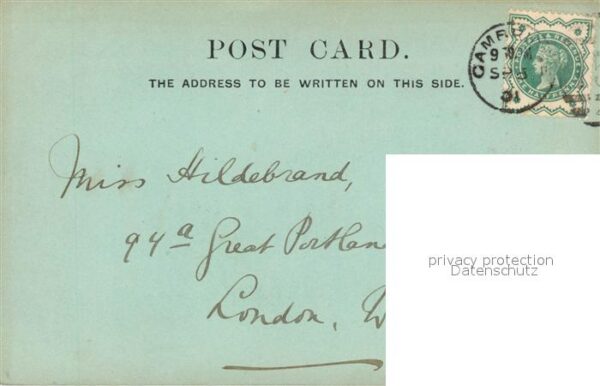 POST CARD.
THE ADDRESS TO BE WRITTEN ON THIS SIDE.
Miss Hildebrand,
94a Great Portlan
London, W
privacy protection
Datenschutz